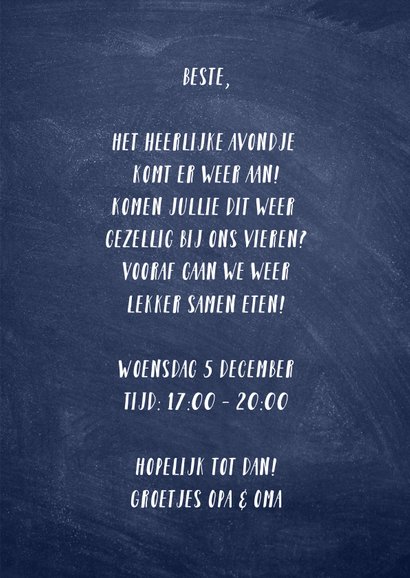 BESTE,
HET HEERLIJKE AVONDJE
KOMT ER WEER AAN!
KOMEN JULLIE DIT WEER
GEZELLIG BIJ ONS VIEREN?
VOORAF GAAN WE WEER
LEKKER SAMEN ETEN!
WOENSDAG 5 DECEMBER
TIJD: 17:00 - 20:00
HOPELIJK TOT DAN!
GROETJES OPA & OMA